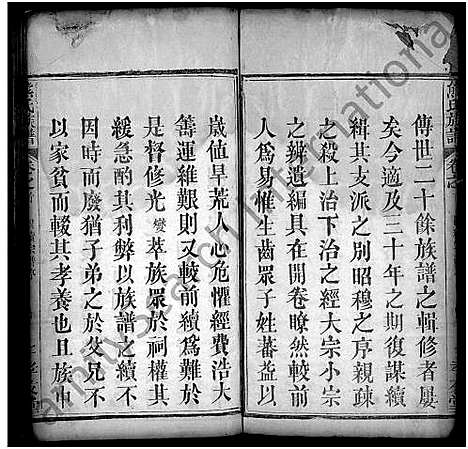 傳世二十餘族譜之輯修者屢
矣今適及三十年之期復謀續
緝其支派之別昭穆之序親疎
之殺上治下治之經大宗小宗
之辨遺編具在開卷瞭然較前
人為易惟生齒眾子姓蕃益以
歲値旱荒人心危懼經費浩大
籌運維艱則又較前續為難於
是督修光燮萃族眾於祠權其
緩急酌其利弊以族譜之續不
因時而廢猶子弟之於父兄不
以家貧而輟其孝養也且族中
氏族譜
Family Search International